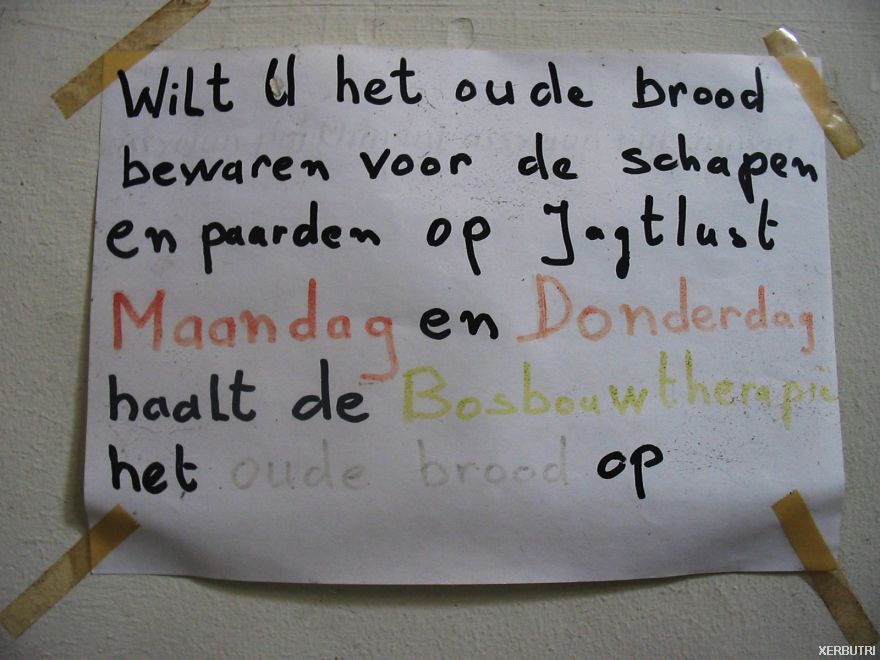 Wilt U het oude brood
bewaren voor de schapen
en paarden op Jagtlust
Maandag en Donderdag
haalt de Bosbouwtherapie
het oude brood op
XERBUTRI